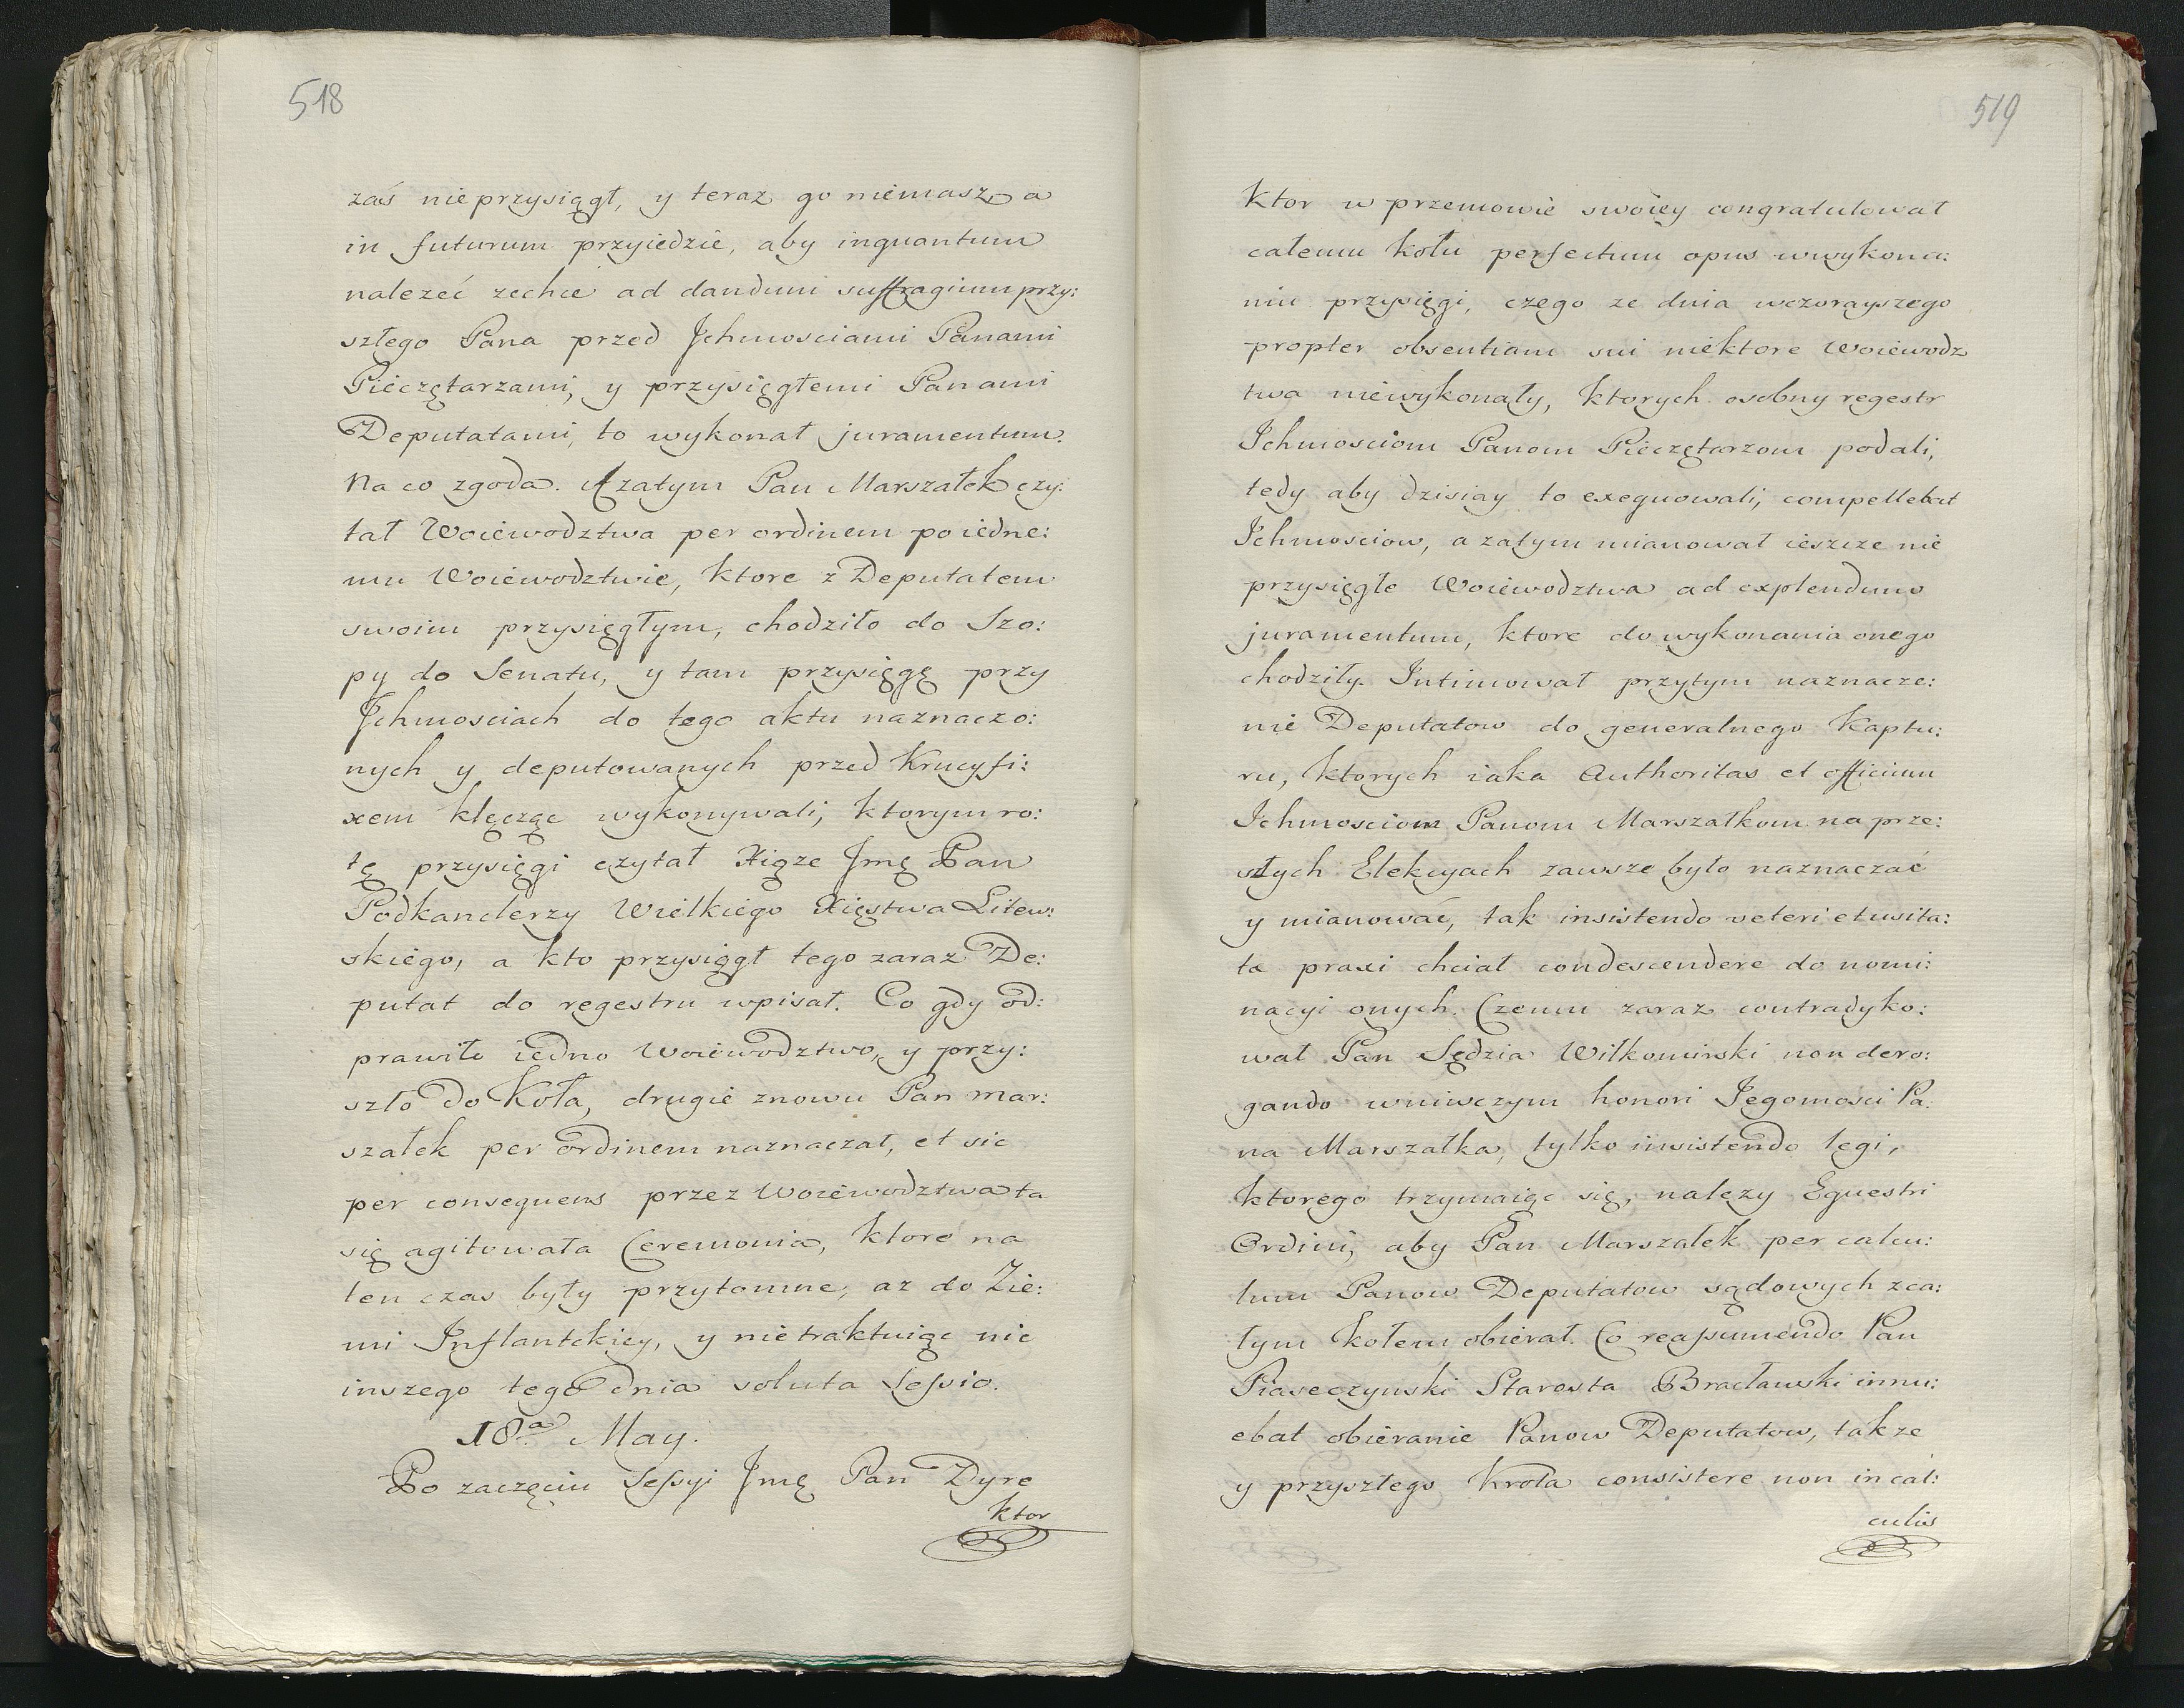 518
zaś nieprzysiągł, y teraz go niemasz, a
in futurum przyiedzie, aby inquantum
nalezeć zechce ad dandum suffragium przy:
szłego Pana przed Jchmosciami Panami
Pieczętarzami, y przysięgłemi Panami
Deputatami, to wykonał juramentum.
Na co zgoda. A zatym Pan Marszałek czy:
tał Woiewodztwa per ordinem po iedne:
mu Woiewodztwie, ktore z Deputatem
swoim przysięgłym, chodziło do Szo:
py do Senatu, y tam przysięgę przy
Jchmosciach do tego aktu naznaczo:
nych y deputowanych przed Krucyfi:
xem klęcząc wykonywali, ktorym ro:
tę przysięgi czytał Xiąze Jmę Pan
Podkanclerzy Wielkiego Xięstwa Litew:
skiego, a kto przysiągł tego zaraz De:
putat do regestru wpisał. Co gdy od:
prawiło iedno Woiewodztwo, y przy:
szło do Koła, drugie znowu Pan mar:
szałek per ordinem naznaczał, et sic
per consequens przez Woiewodztwa ta
się agitowała Ceremonia, ktore na
ten czas były przytomne, az do Zie:
mi Inflantckiey, y nietraktuiąc nic
inszego tego dnia soluta Sessio.
18a May.
Po zaczęciu Sessyi Jmę Pan Dyre
ktor
519
Ktor w przemowie swoiey congratulował
całemu kołu perfectum opus w wykona:
niu przysięgi, czego ze dnia wczorayszego
propter absentiam sui niektore Woiewodz
twa niewykonały, ktorych osobny regestr
Jchmosciom Panom Pieczętarzom podali,
tedy aby dzisiay to exequowali, compellebat
Jchmosciow, a zatym mianował ieszcze nie
przysięgłe Woiewodztwa ad explendum
juramentum, ktore do wykonania onego
chodziły. Intimował przytym naznacze:
nie Deputatow do generalnego Kaptu:
ru, ktorych iaka Authoritas et officium
Jchmosciom Panom Marszałkom na prze:
szłych Elekcyach zawsze było naznaczać
y mianować, tak insistendo veteri et usita:
ta praxi chciał condescendere do nomi:
nacyi onych. Czemu zaraz contradyko:
wał Pan Sędzia Wiłkomirski non dero:
gando wniwczym honori Jegomości Pa:
na Marszałka, tylko insistendo legi,
ktorego trzymaiąc się, nalezy Equestri
Ordini, aby Pan Marszałek per calcu:
lum Panow Deputatow sądowych z ca:
łym kołem obierał. Co reassumendo Pan
Piaseczynski Starosta Bracławski innu:
ebat obieranie Panow Deputatow, takze
y przyszłego Krola consistere non in cal:
culis